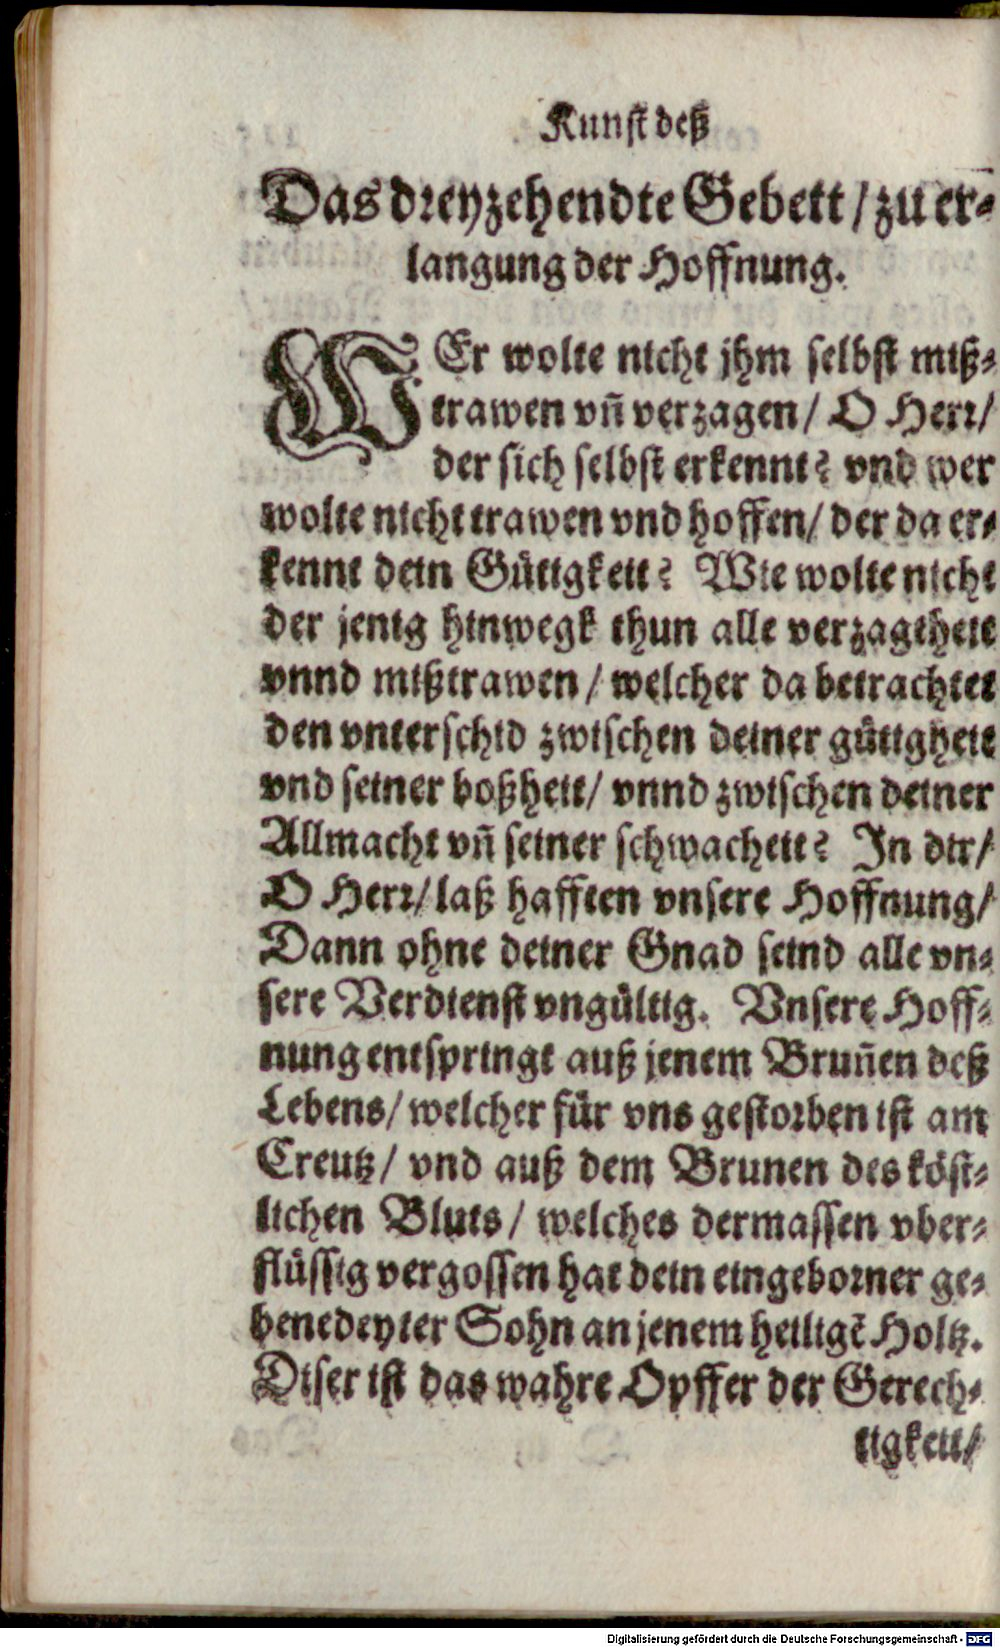 Kunst deß
Das dreyzehendte Gebett / zu er-
langung der Hoffnung.
WEr wolte nicht jhm selbst miß-
trawen vñ verzagen / O Herr /
der sich selbst erkennt? vnd wer
wolte nicht trawen vnd hoffen / der da er-
kennt dein Gütigkeit? Wie wolte nicht
der jenig hinwegk thun alle verzagtheit
vnnd mißtrawen / welcher da betrachtet
den vnterschid zwischen deiner gütigheit
vnd seiner boßheit / vnnd zwischen deiner
Allmacht vñ seiner schwacheit? In dir /
O Herr / laß hafften vnsere Hoffnung /
Dann ohne deiner Gnad seind alle vn-
sere Verdienst vngültig. Vnsere Hoff-
nung entspringt auß jenem Bruñen deß
Lebens / welcher für vns gestorben ist am
Creutz / vnd auß dem Brunen des köst-
lichen Bluts / welches dermassen vber-
flüssig vergossen hat dein eingeborner ge-
benedeyter Sohn an jenem heiligẽ Holtz.
Diser ist das wahre Opffer der Gerech-
tigkeit /
Digitalisierung gefördert durch die Deutsche Forschungsgemeinschaft - DFG